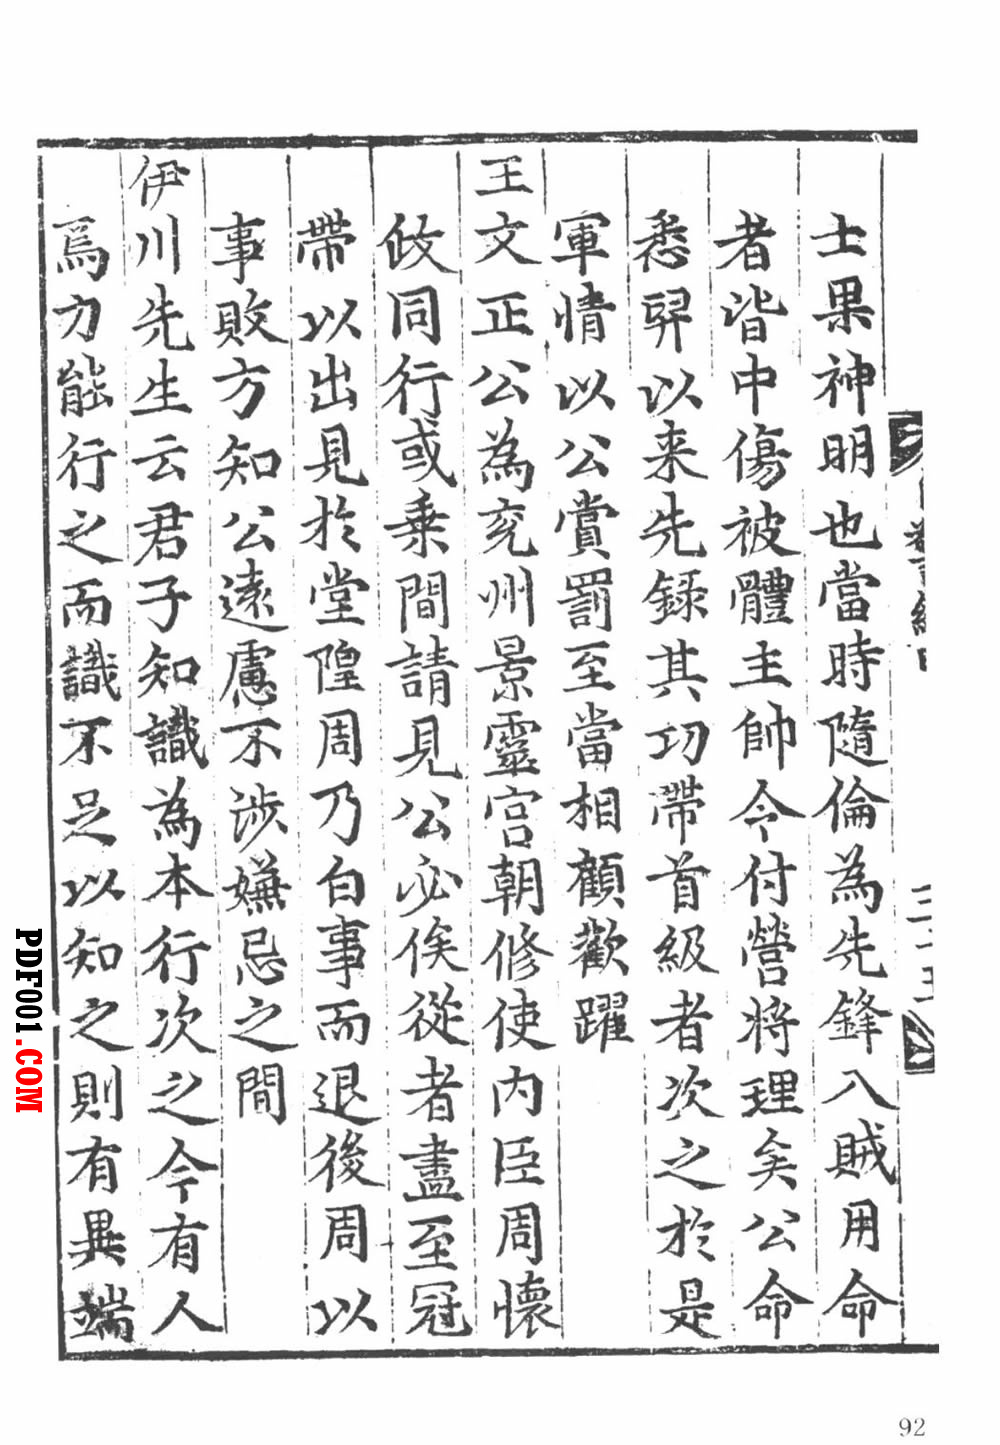 士果神明也當時隨倫為先鋒入賊用命
者皆中傷被體主帥令付營將理矣公命
悉羿以来先録其功帶首級者次之於是
軍情以公賞罰至當相顧歡躍
王文正公為兖州景靈宫朝修使内臣周懷
政同行或乗間請見公必俟從者盡至冠
帶以出見於堂隍周乃白事而退後周以
事敗方知公遠慮不涉嫌忌之間
伊川先生云君子知識為本行次之今有人
焉力能行之而識不足以知之則有異端
92
PDF001.COM